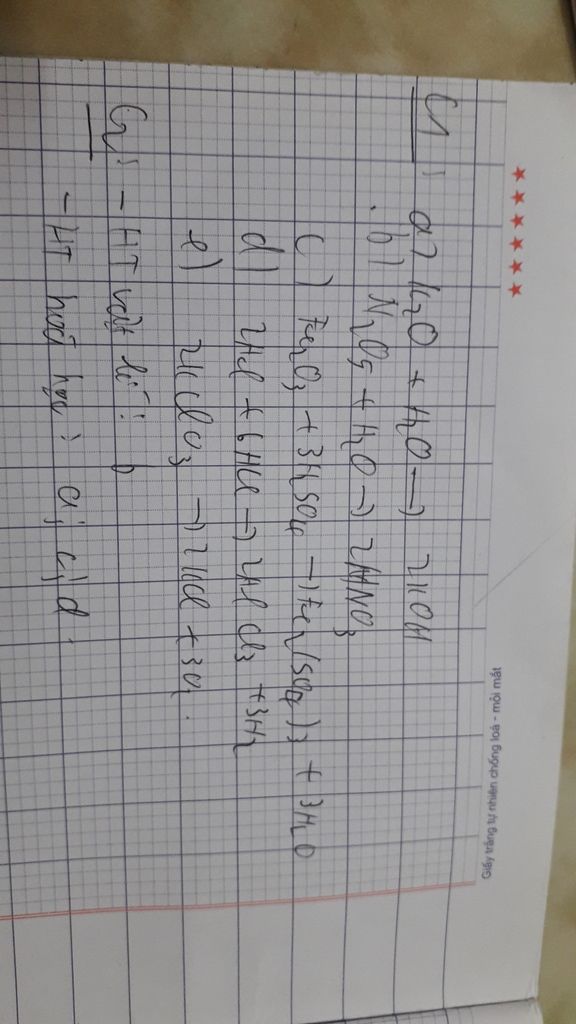 C1: a) K2O + H2O → 2KOH
b) N2O5 + H2O → 2HNO3
c) Fe2O3 + 3H2SO4 → Fe2(SO4)3 + 3H2O
d) 2Al + 6HCl → 2AlCl3 + 3H2
e) 2KClO3 → 2KCl + 3O2.
C2: - HT vật lí: b
- HT hoá học: a, c, d.
Giấy trắng tự nhiên chống loá - mỏi mắt